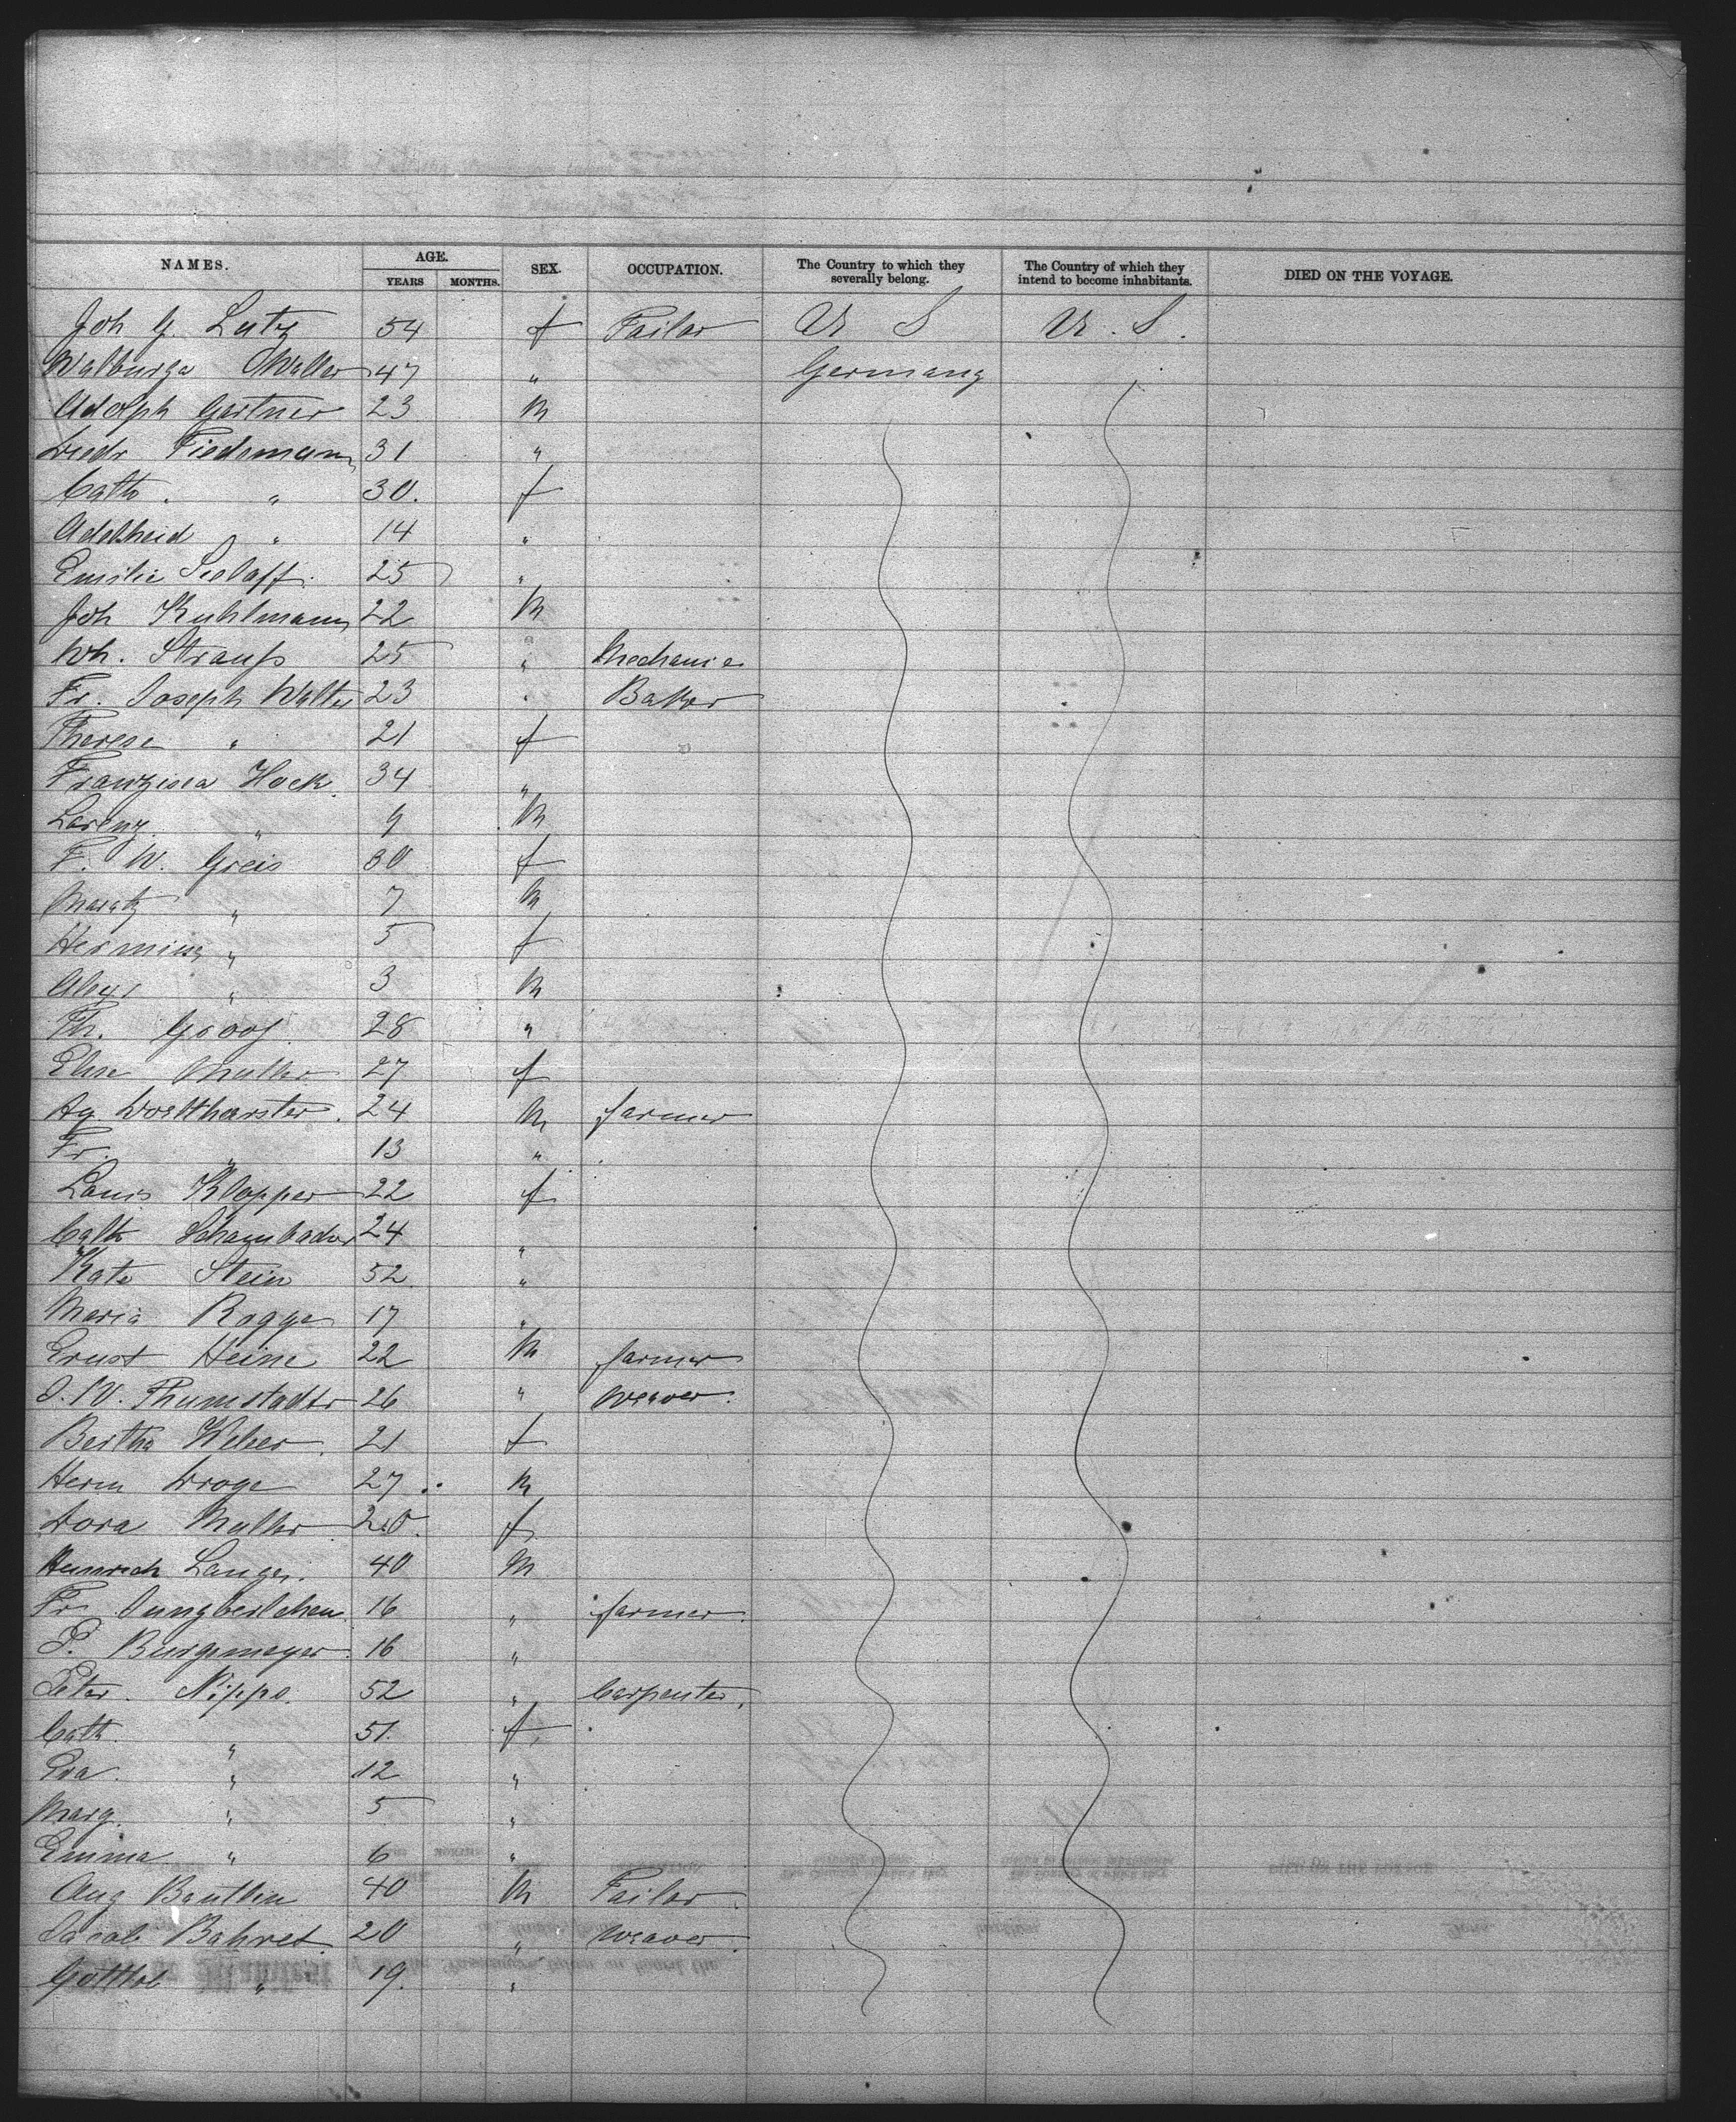 NAMES. AGE. SEX. OCCUPATION. The Country to which they severally belong. The Country of which they intend to become inhabitants. DIED ON THE VOYAGE.
YEARS MONTHS.
Joh G. Lutz 54 f Tailor U S U. S.
Walburga Waller 47 " Germany
Adolph Gartner 23 M
Diedr Tiedemann 31 "
Cath. " 30. f
Adelheid " 14 "
Emilie Seelaff. 25 "
Joh Kuhlmann 22 M
Wh. Strauß 25 " Mechanic
Fr. Joseph Walter 23 " Baker
Therese " 21 f
Franzisca Hock. 34 "
Lorenz. " 9 M
F. W. Greis 30 f
Moratz " 7 M
Hermine " 5 f
" 3 M
Th. 28 "
Elise Muller 27 f
24 M farmer
Fr. " 13 "
Louis Klopper 22 f
Cath Schambader 24 "
Kate Stein 52 "
Maria Rogge 17 "
Ernst Heine 22 M farmer
J. W. Thumstadter 26 " Weaver.
Bertha Weber. 21 f
Herm Droge 27 M
Dora Muller 20. f
Heinrich Langer. 40 M
Fr 16 " farmer.
P. Burgemeyer. 16 "
Peter. Nippo. 52 " Carpenter.
Cath. " 51. f
Eva. " 12 "
Marg. " 5 "
Emma " 6 "
Aug 40 M Tailor.
Jacob Bahret. 20 " Weaver.
Gottlob " 19. "